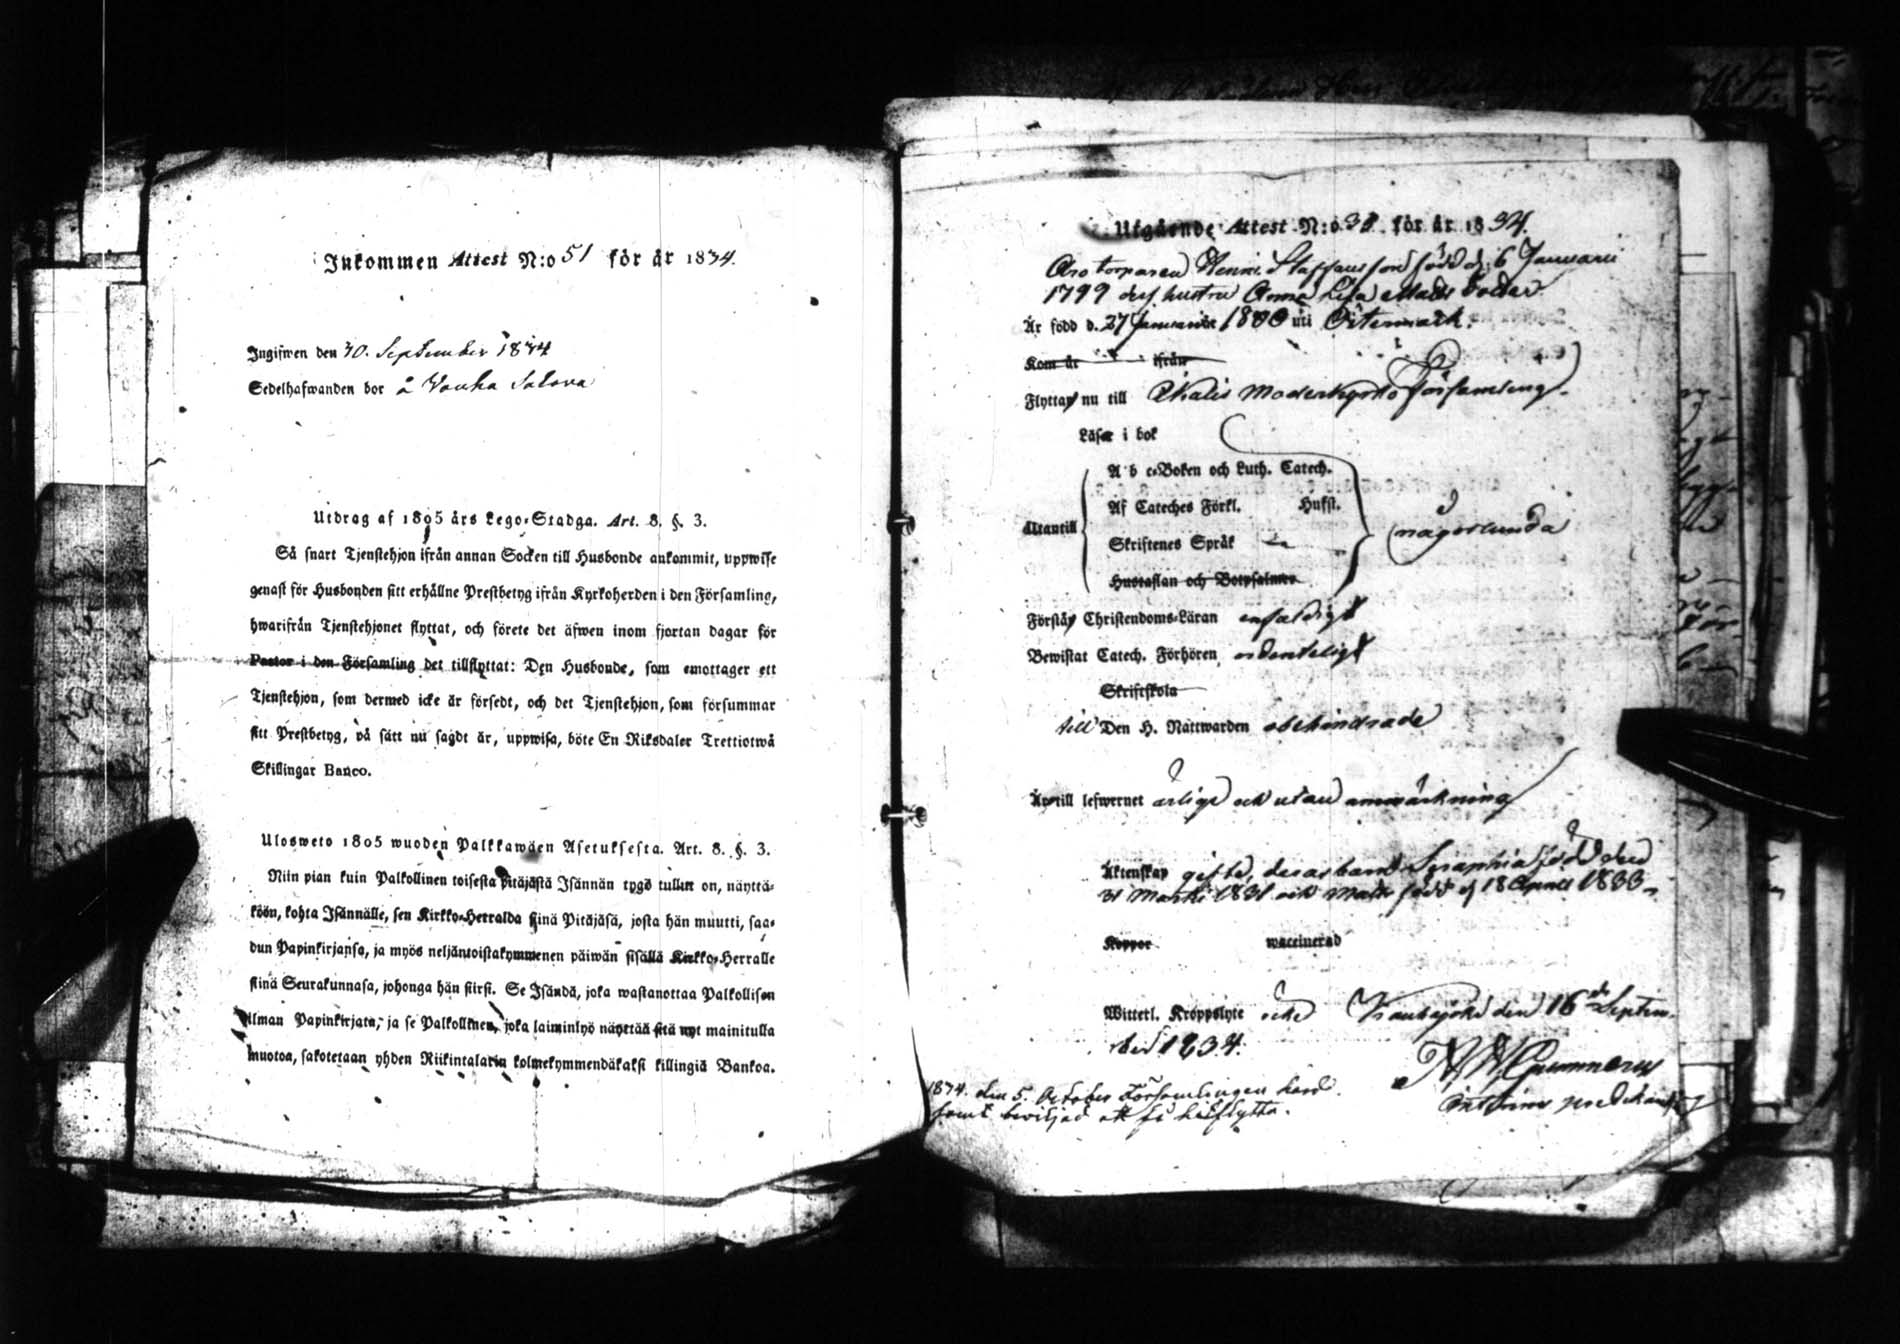 Inkommen Attest N:o 51 för år 1834.
Ingifwen den 30. September 1834
Sedelhafwanden bor å Vanha Salova
Utdrag af 1805 års Lego-Stadga. Art. 8. §. 3.
Så snart Tjenstehjon ifrån annan Socken till Husbonde ankommit, uppwise
genast för Husbonden sitt erhållne Prestbetyg ifrån Kyrkoherden i den Församling,
hwarifrån Tjenstehjonet flyttat, och förete det äfwen inom fjortan dagar för
Pastor i den Församling det tillflyttat: Den Husbonde, som emottager ett
Tjenstehjon, som dermed icke är försedt, och det Tjenstehjon, som försummar
sitt Prestbetyg, på sätt nu sagdt är, uppwisa, böte En Riksdaler Trettiotwå
Skillingar Banco.
Ulosweto 1805 wuoden Palkkawäen Asetuksesta. Art. 8. §. 3.
Niin pian kuin Palkollinen toisesta pitäjästä Isännän tygö tullut on, näyttä-
köön, kohta Isännälle, sen Kirkko-Herralda siinä Pitäjäsä, josta hän muutti, saa-
dun Papinkirjansa, ja myös neljäntoistakymmenen päiwän sisällä Kirkko-Herralle
siinä Seurakunnasa, johonga hän siirsi. Se Isändä, joka wastanottaa Palkollisen
ilman Papinkirjata, ja se Palkollinen, joka laiminlyö näyttää sitä nyt mainitulla
muotoa, sakotetaan yhden Riikintalarin kolmekymmendäkaksi killingiä Bankoa.
Utgående Attest N:o 38 för år 1834.
Arotorparen Henric Staffansson född d. 6 Januarii
1799 dess hustru Anna Lisa Mattsdotter
Är född d. 27 Januarii 1800 uti Östermark.
Kom år ifrån
Flyttar nu till Ikalis Moderkyrko Församling.
Läser i bok
A b c-Boken och Luth. Catech.
Af Cateches Förkl. Husst.
Utantill
Skriftenes Språk
någorlunda
Hustaflan och Botpsalmer
Förstår Christendoms-Läran enfaldigt
Bewistat Catech. Förhören ordenteligt
Skriftskola
till Den H. Nattwarden obehindrade
Är till lefwernet ärlige och utan anmärkning
Äktenskap gifte, deras barn Seraphia född den
31 Martii 1831 och Matts född d 18 April 1833.
Koppor waccinerad
Witterl. Kroppslyte icke Kauhajoki den 16de Septem-
ber 1834.
Gummerus
1834. den 5. October Församlingen hörd
samt beviljad att få hitflytta.